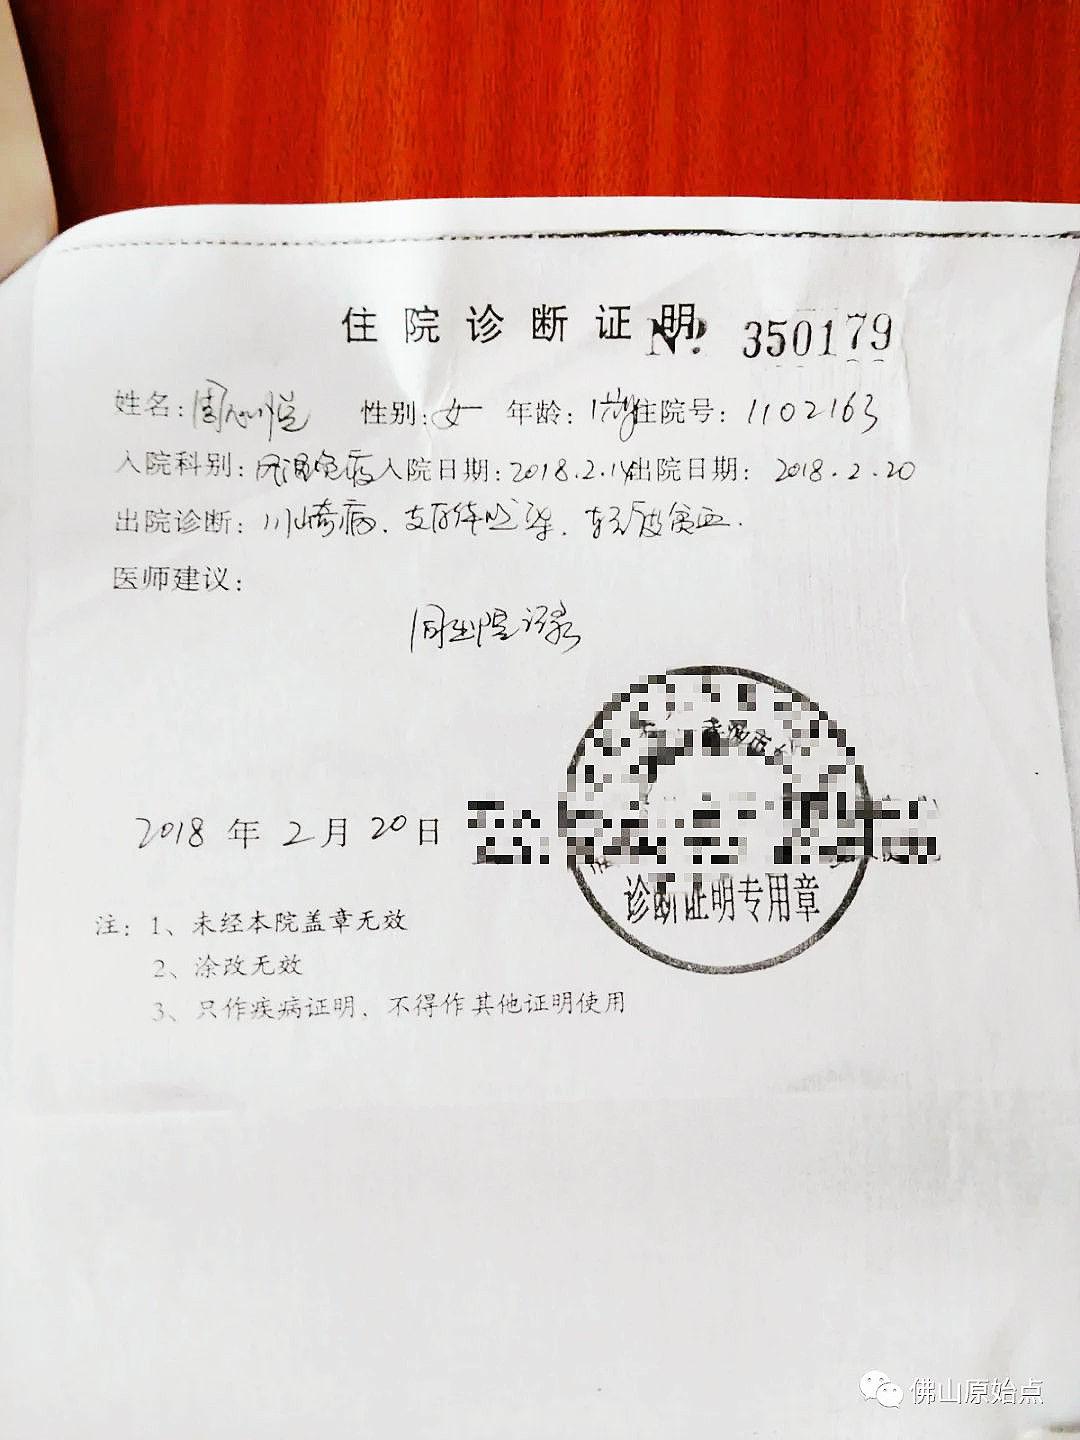 住院诊断证明 №: 350179
姓名: 周 性别: 女 年龄: 1 住院号: 1102163
入院科别: 风湿免疫 入院日期: 2018.2.14 出院日期: 2018.2.20
出院诊断: 川崎病. 支原体感染. 轻度贫血.
医师建议:
同出院记录
2018 年 2 月 20 日
诊断证明专用章
注: 1、未经本院盖章无效
2、涂改无效
3、只作疾病证明、不得作其他证明使用
佛山原始点